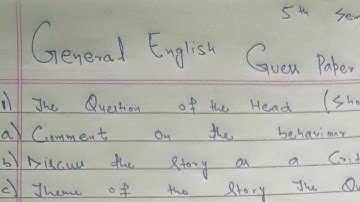 5th Sem
General English Guess Paper
1) The Question of the Head (Sho
a) Comment on the behaviour
b) Discuss the Story as a Crit
c) Theme of the Story The Qu